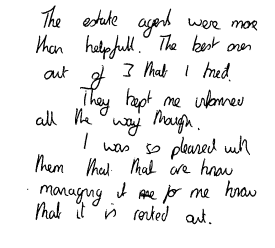 The estate agent were more
than helpfull. The best ones
out of 3 that I tried.
They kept me informed
all the way though.
I was so pleased with
them that that are know
managing it for me know
that it is rented out.